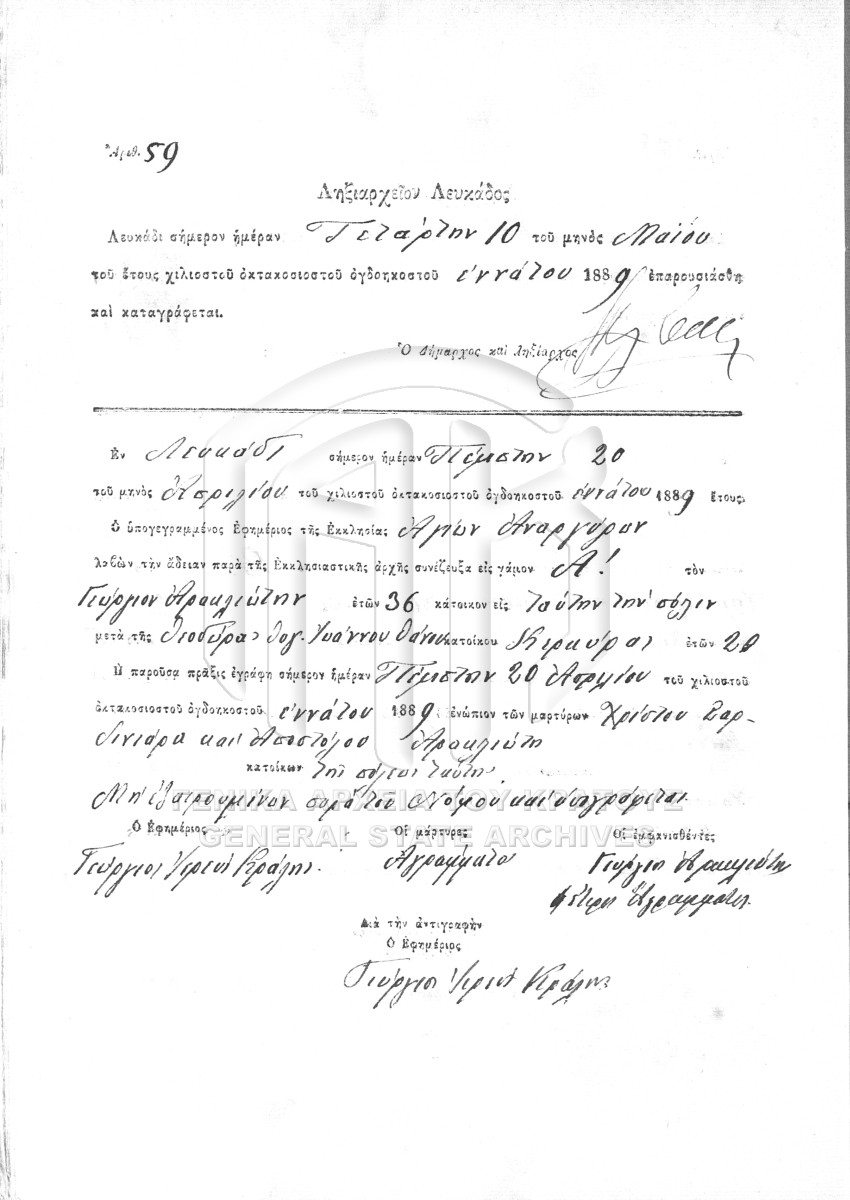 Ἀριθ. 59
Ληξιαρχεῖον Λευκάδος
Λευκάδι σήμερον ἡμέραν Τετάρτην 10 τοῦ μηνὸς Μαΐου
τοῦ ἔτους χιλιοστοῦ ὀκτακοσιοστοῦ ὀγδοηκοστοῦ ἐννάτου 1889 ἐπαρουσιάσθη
καὶ καταγράφεται.
Ὁ Δήμαρχος καὶ Ληξίαρχος
Ἐν Λευκάδι σήμερον ἡμέραν Πέμπτην 20
τοῦ μηνὸς Ἀπριλίου τοῦ χιλιοστοῦ ὀκτακοσιοστοῦ ὀγδοηκοστοῦ ἐννάτου 1889 ἔτους.
Ὁ ὑπογεγραμμένος Ἐφημέριος τῆς Ἐκκλησίας Ἁγίων Ἀναργύρων
λαβὼν τὴν ἄδειαν παρὰ τῆς Ἐκκλησιαστικῆς ἀρχῆς συνέζευξα εἰς γάμον Α! τὸν
Γεώργιον Ἀρακλιώτην ἐτῶν 36 κάτοικον εἰς ταύτην τὴν πόλιν
μετὰ τῆς Θεοδώρας θυγ. Ἰωάννου κατοίκου Κερκύρας ἐτῶν 20
Ἡ παροῦσα πρᾶξις ἐγράφη σήμερον ἡμέραν Πέμπτην 20 Ἀπριλίου τοῦ χιλιοστοῦ
ὀκτακοσιοστοῦ ὀγδοηκοστοῦ ἐννάτου 1889 ἐνώπιον τῶν μαρτύρων Χρίστου Σαρ-
δινιάρα καὶ Ἀποστόλου Ἀρακλιώτη
κατοίκων τῆς πόλεως ταύτης.
Μὴ ἐξαιρουμένων παρὰ τοῦ Νόμου καὶ ὑπογράφεται.
ΓΕΝΙΚΑ ΑΡΧΕΙΑ ΤΟΥ ΚΡΑΤΟΥΣ
GENERAL STATE ARCHIVES
Ὁ Ἐφημέριος Οἱ μάρτυρες Οἱ ἐμφανισθέντες
Γεώργιος Ἱερεὺς Κράλης Ἀγράμματοι Γεώργιος Ἀρακλιώτης
ἡ ἑτέρα ἀγράμματος
Διὰ τὴν ἀντιγραφὴν
Ὁ Ἐφημέριος
Γεώργιος Ἱερεὺς Κράλης